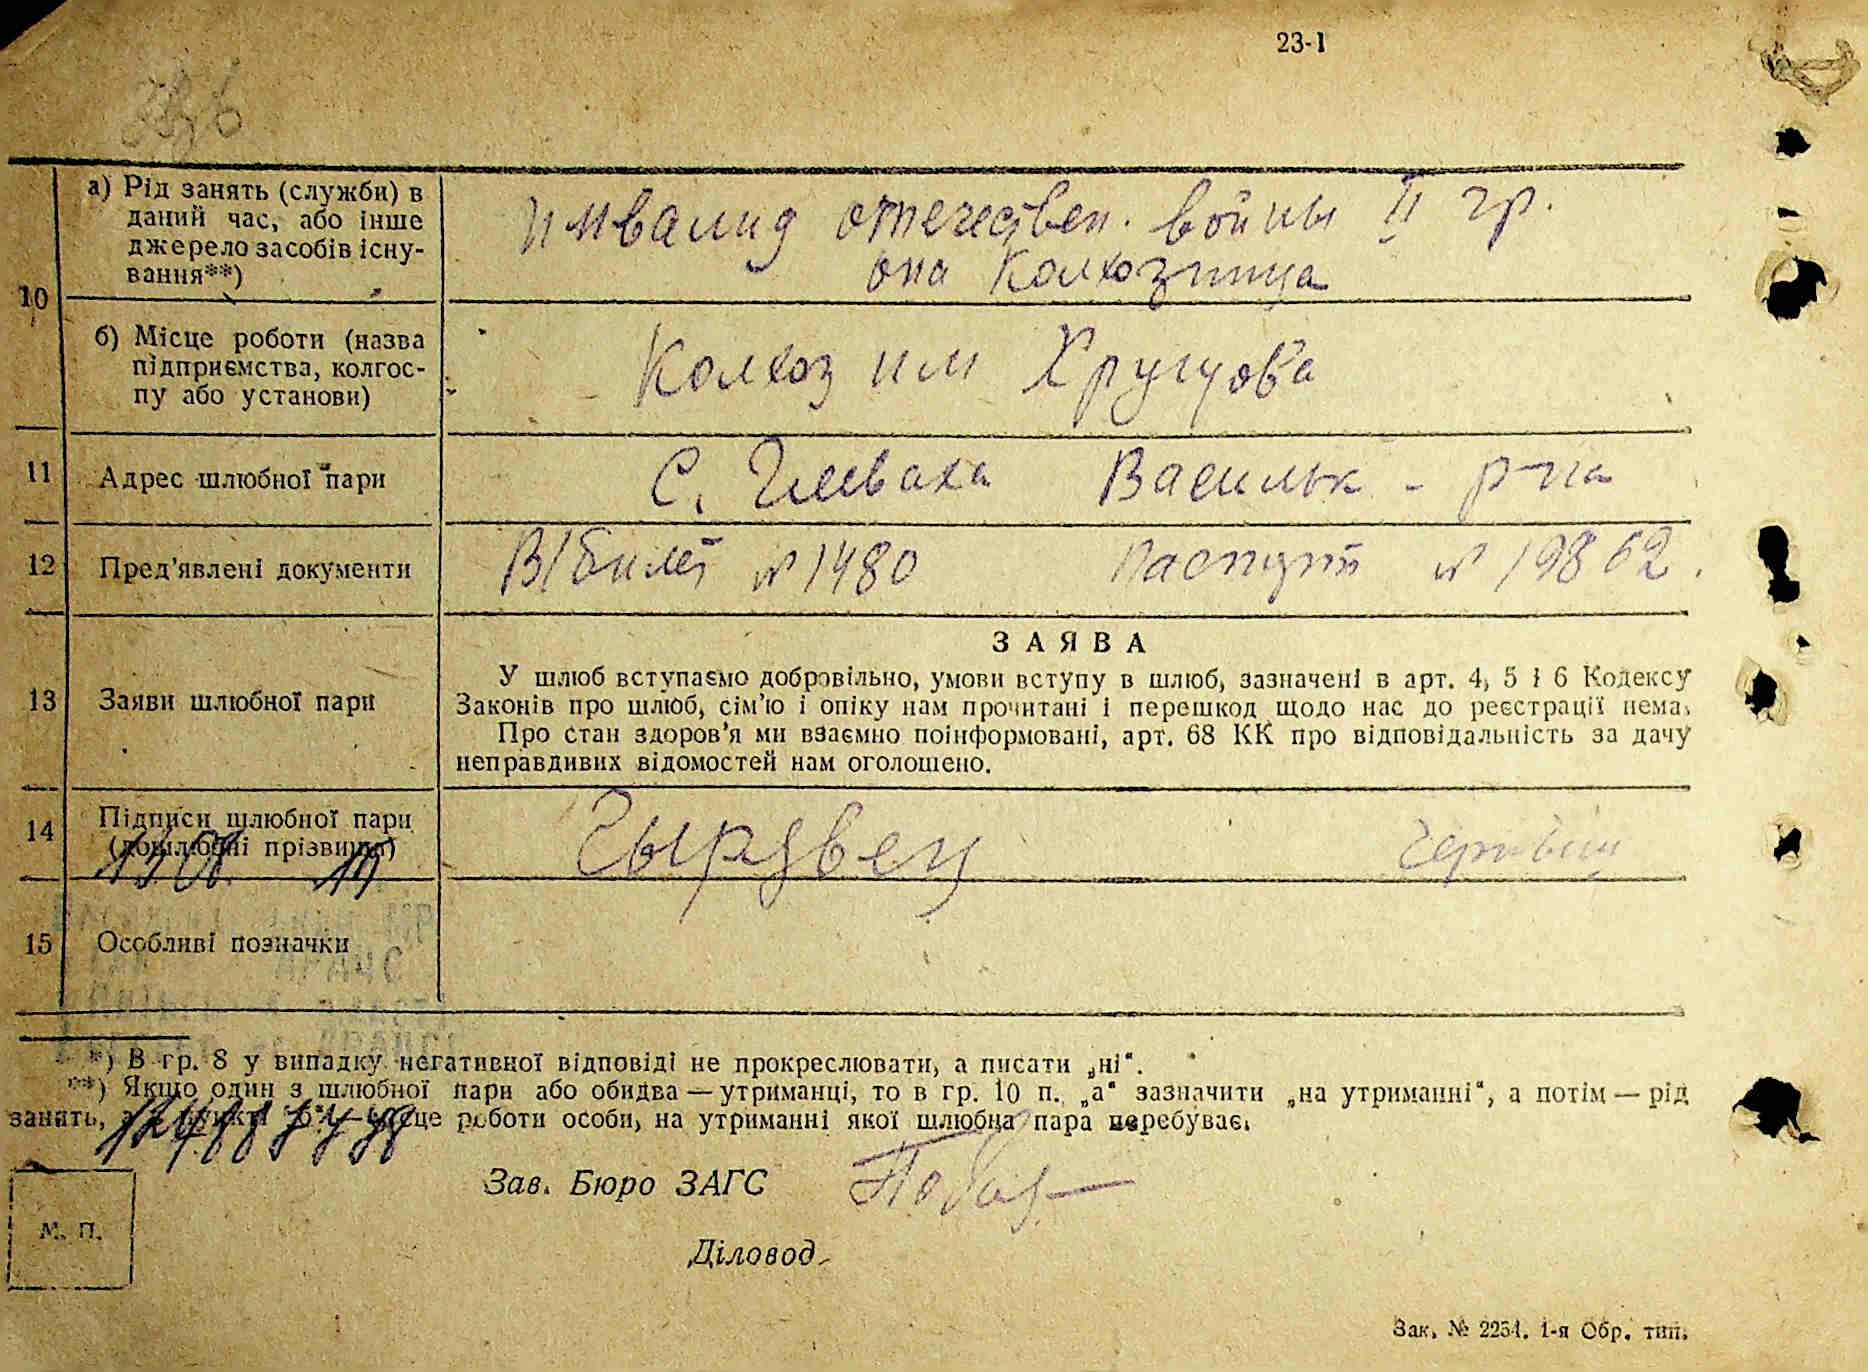 23-1
10
а) Рід занять (служби) в
даний час, або інше
джерело засобів існу-
вання**)
инвалид отечествен. войны II гр.
она колхозница
б) Місце роботи (назва
підприємства, колгос-
пу або установи)
Колхоз им Хрущова
11 Адрес шлюбної пари
С. Глеваха Васильк - р-на
12 Пред'явлені документи
В/билет № 1480 Паспорт № 19862.
ЗАЯВА
13 Заяви шлюбної пари
У шлюб вступаємо добровільно, умови вступу в шлюб, зазначені в арт. 4, 5 і 6 Кодексу
Законів про шлюб, сім'ю і опіку нам прочитані і перешкод щодо нас до реєстрації нема.
Про стан здоров'я ми взаємно поінформовані, арт. 68 КК про відповідальність за дачу
неправдивих відомостей нам оголошено.
14 Підписи шлюбної пари
(дошлюбні прізвища)
15 Особливі позначки
*) В гр. 8 у випадку негативної відповіді не прокреслювати, а писати „ні“.
**) Якщо один з шлюбної пари або обидва — утриманці, то в гр. 10 п. „а“ зазначити „на утриманні“, а потім — рід
занять, роботи особи, на утриманні якої шлюбна пара перебуває.
Зав. Бюро ЗАГС
М. П.
Діловод
Зак. № 2254. 1-я Обр. тип.